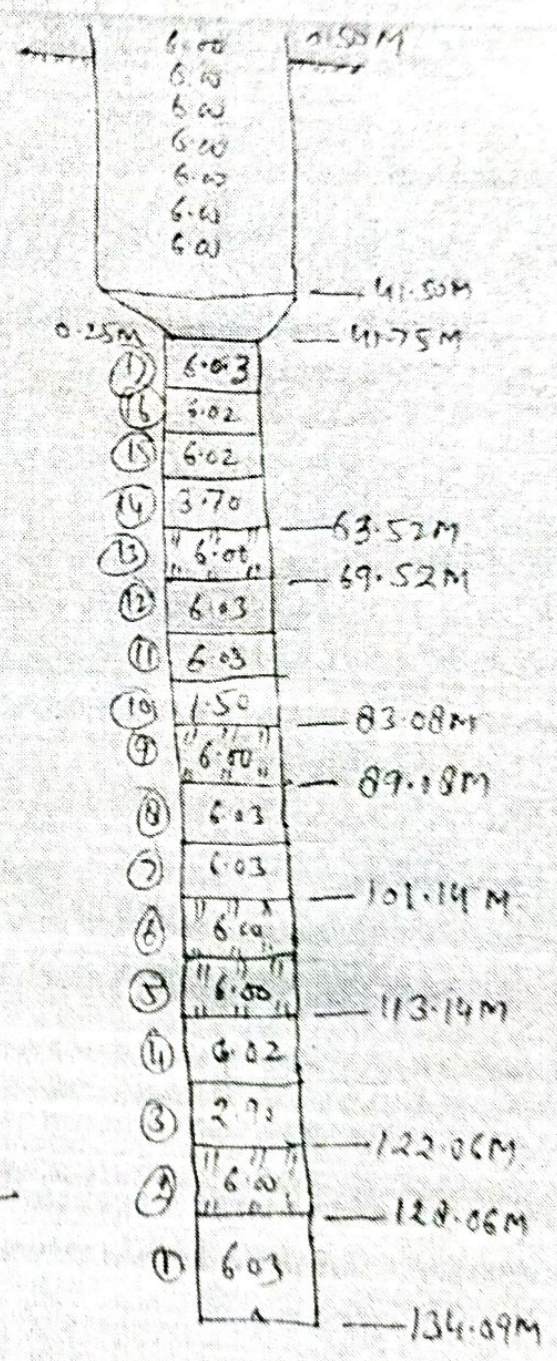 6.00 0.50M
6.00
6.00
6.00
6.00
6.00
6.00
41.50M
0.25M 41.75M
17 6.03
16 6.02
15 6.02
14 3.70
63.52M
13 " " " 6.00 " " "
69.52M
12 6.03
11 6.03
10 1.50
83.08M
9 " " " 6.00 " "
89.08M
8 6.03
7 6.03
101.14M
6 " " " 6.00 " " "
5 " " " 6.00 " " "
113.14M
4 6.02
3 2.90
122.06M
2 " " " 6.00 " " "
128.06M
1 6.03
134.09M